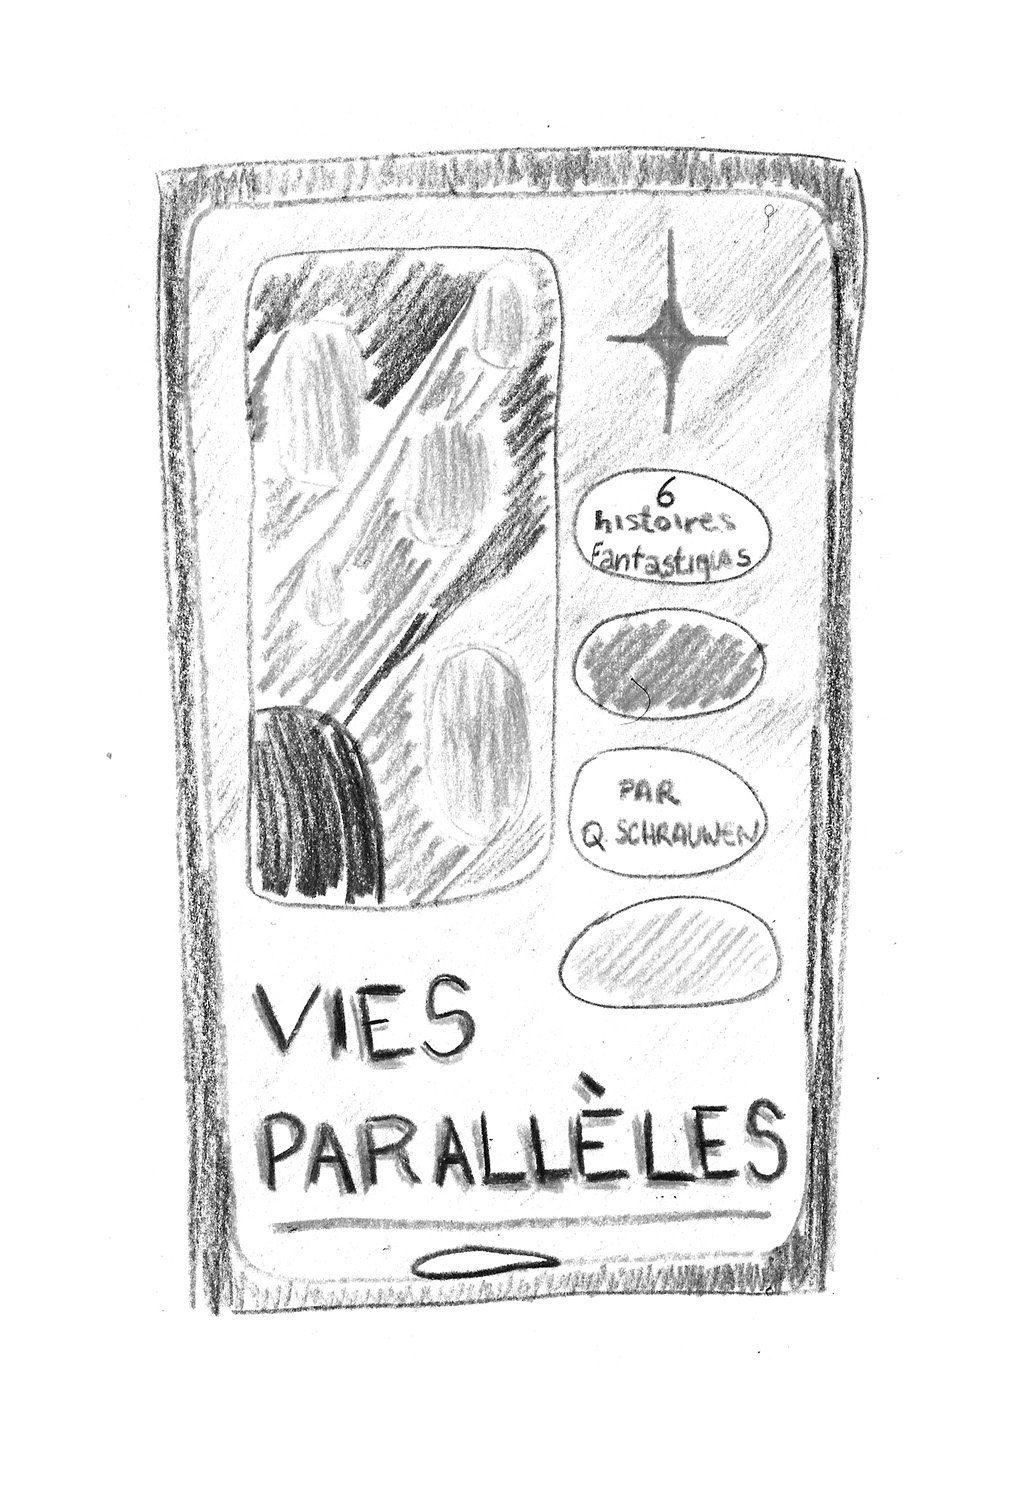 6
histoires
Fantastiques
PAR
Q. SCHRAUWEN
VIES
PARALLÈLES